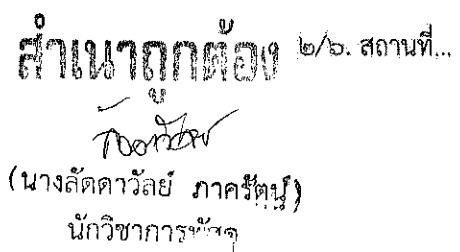 สำเนาถูกต้อง ๒/๖. สถานที่...
(นางลัดดาวัลย์ ภาครัตน์)
นักวิชาการพัสดุ